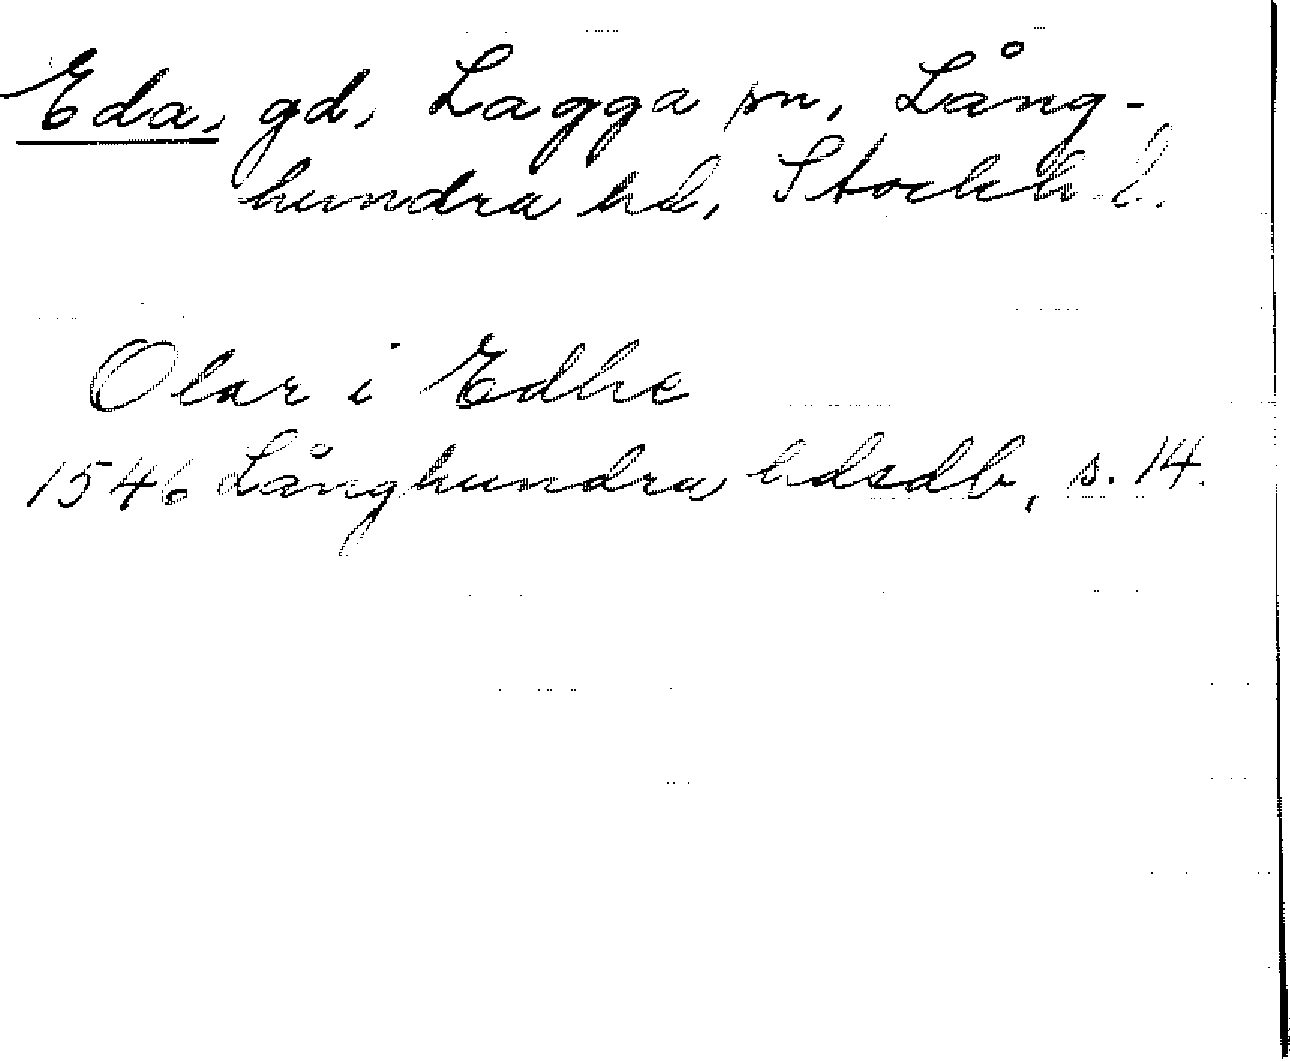 Eda, gd, Lagga sn, Lång-
hundra hd, Stockh. l.
Olar i Edhe
1546 Långhundra hdsdb, s. 14.